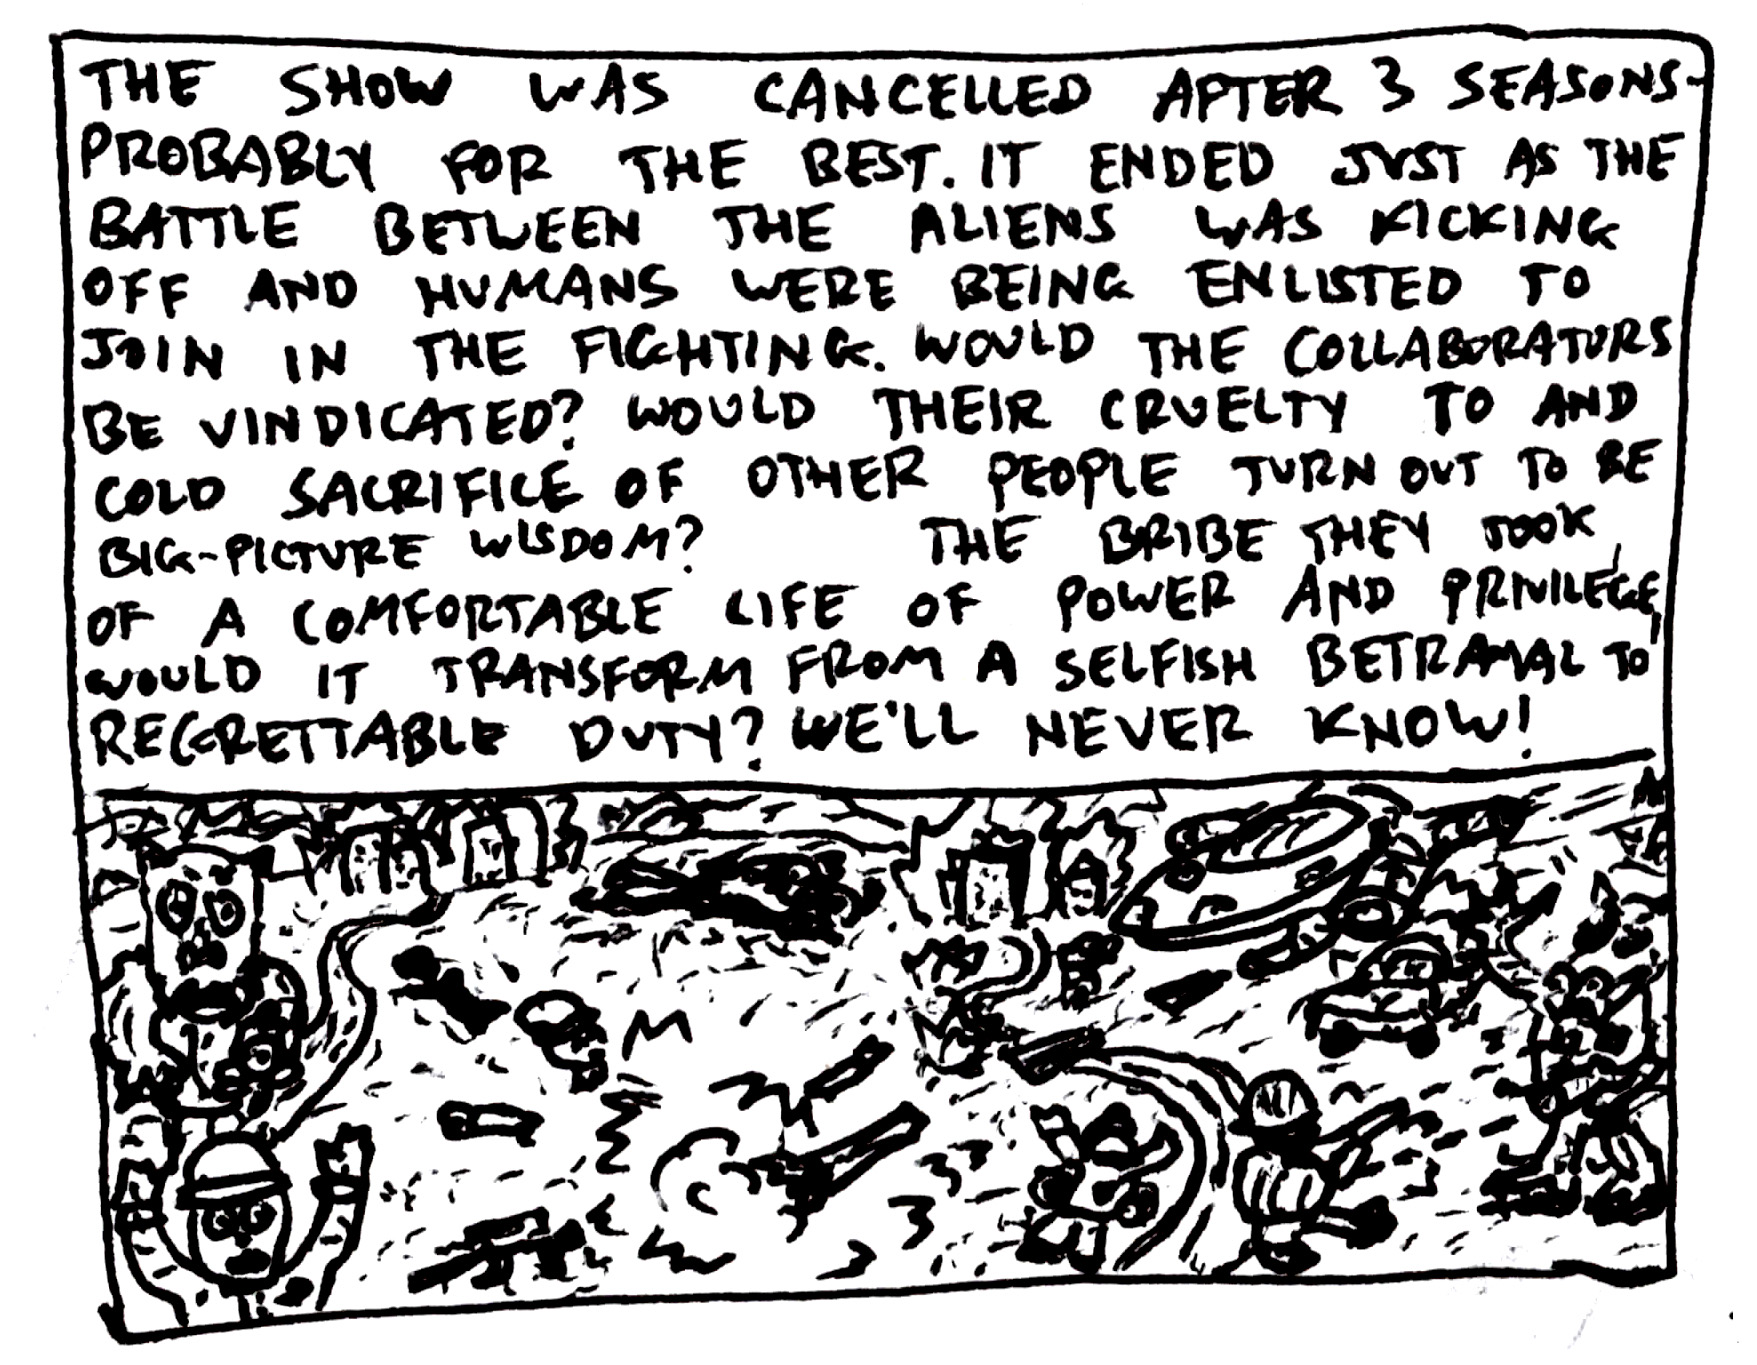 THE SHOW WAS CANCELLED AFTER 3 SEASONS-
PROBABLY FOR THE BEST. IT ENDED JUST AS THE
BATTLE BETWEEN THE ALIENS WAS KICKING
OFF AND HUMANS WERE BEING ENLISTED TO
JOIN IN THE FIGHTING. WOULD THE COLLABORATORS
BE VINDICATED? WOULD THEIR CRUELTY TO AND
COLD SACRIFICE OF OTHER PEOPLE TURN OUT TO BE
BIG-PICTURE WISDOM? THE BRIBE THEY TOOK,
OF A COMFORTABLE LIFE OF POWER AND PRIVILEGE,
WOULD IT TRANSFORM FROM A SELFISH BETRAYAL TO
REGRETTABLE DUTY? WE'LL NEVER KNOW!